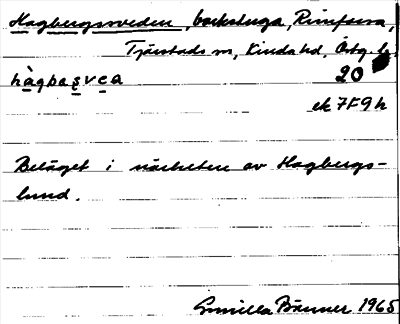 Hagbergssveden, backstuga, Rimforsa,
Tjärstads sn, Kinda hd, Östg. l.
hàgbasvea 20
ek 7F9h
Beläget i närheten av Hagbergs-
lund.
Gunilla Bänner 1965